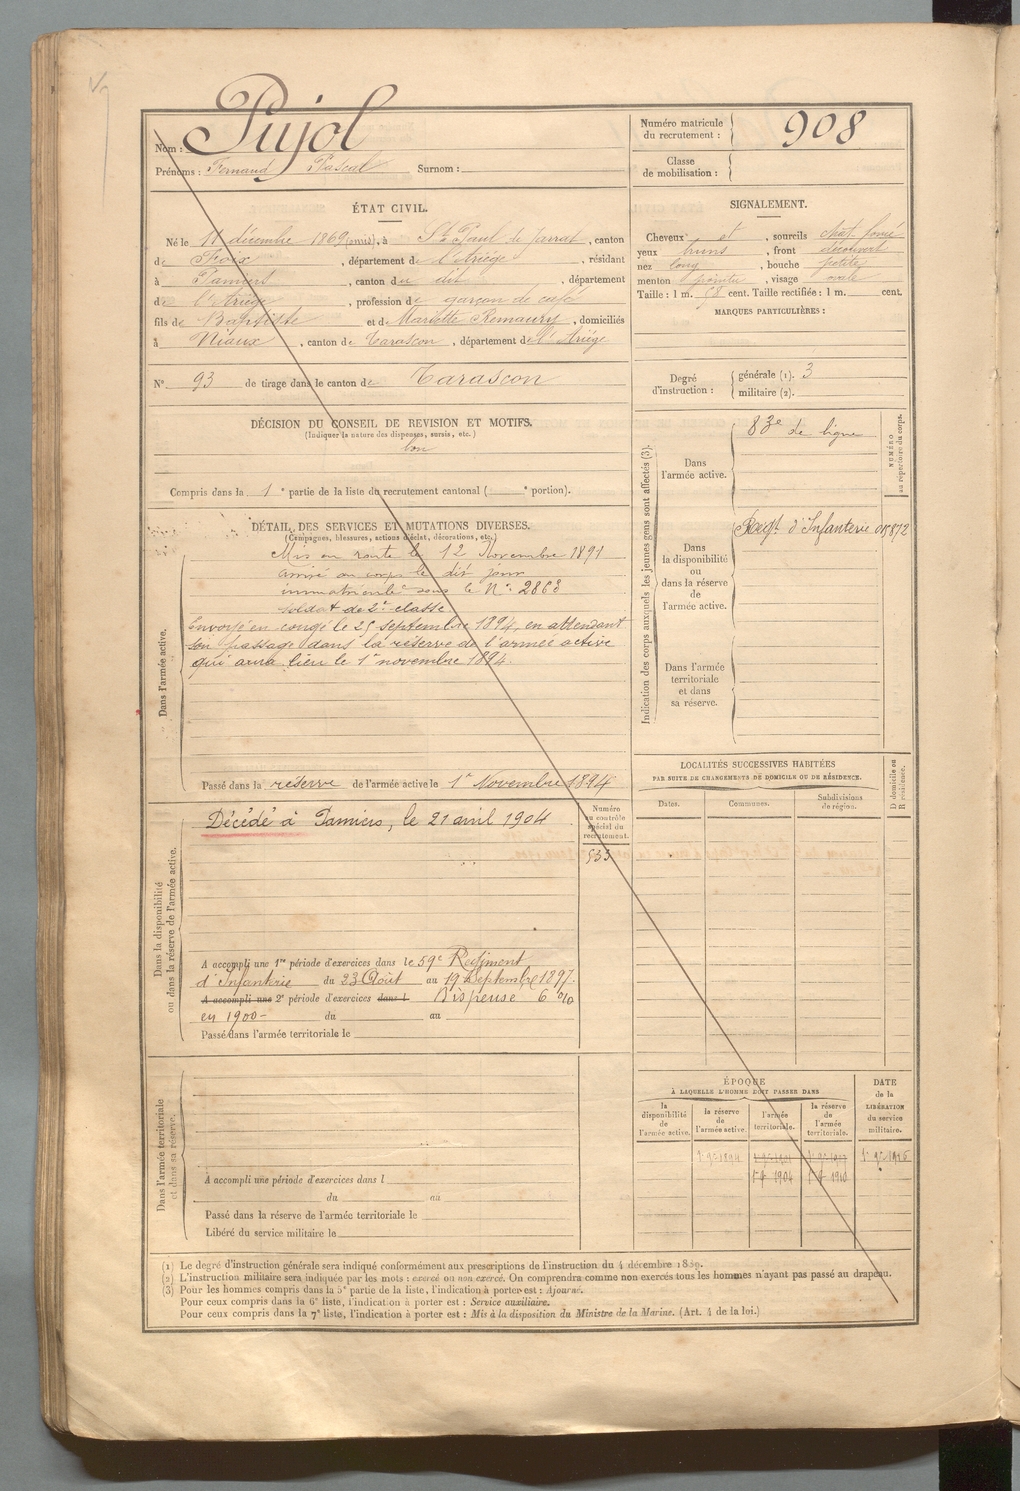 Nom : Pujol
Prénoms : Fernand Pascal Surnom :
Numéro matricule du recrutement : 908
Classe de mobilisation :
ÉTAT CIVIL.
Né le 11 décembre 1869 (omis), à St Paul de Jarrat, canton
de Foix, département de l'Ariège, résidant
à Pamiers, canton du dit, département
de l'Ariège, profession de garçon de café
fils de Baptiste et de Mariette Remaury, domiciliés
à Niaux, canton de Tarascon, département de l'Ariège
N° 93 de tirage dans le canton de Tarascon
SIGNALEMENT.
Cheveux et, sourcils chat. foncé
yeux bruns, front découvert
nez long, bouche petite
menton pointu, visage ovale
Taille : 1 m. 58 cent. Taille rectifiée : 1 m. cent.
MARQUES PARTICULIÈRES :
Degré d'instruction :
générale (1). 3
militaire (2).
DÉCISION DU CONSEIL DE REVISION ET MOTIFS.
(Indiquer la nature des dispenses, sursis, etc.)
bon
Compris dans la 1e partie de la liste du recrutement cantonal ( e portion).
Indication des corps auxquels les jeunes gens sont affectés (3).
NUMÉRO au répertoire du corps.
Dans l'armée active.
83e de ligne
Dans la disponibilité ou dans la réserve de l'armée active.
Regt d'Infanterie 015872
Dans l'armée territoriale et dans sa réserve.
DÉTAIL DES SERVICES ET MUTATIONS DIVERSES.
(Campagnes, blessures, actions d'éclat, décorations, etc.)
Dans l'armée active.
Mis en route le 12 Novembre 1891
arrivé au corps le dit jour
immatriculé sous le N° 2868
soldat de 2e classe
Envoyé en congé le 25 septembre 1894, en attendant
son passage dans la réserve de l'armée active
qui aura lieu le 1er novembre 1894.
Passé dans la réserve de l'armée active le 1er Novembre 1894
LOCALITÉS SUCCESSIVES HABITÉES
PAR SUITE DE CHANGEMENTS DE DOMICILE OU DE RÉSIDENCE.
Dates. Communes. Subdivisions de région.
D domicile ou R résidence.
Dans la disponibilité
ou dans la réserve de l'armée active.
Décédé à Pamiers, le 21 avril 1904
Numéro au contrôle spécial du recrutement.
533
A accompli une 1re période d'exercices dans le 59e Régiment
d'Infanterie du 23 Août au 19 Septembre 1897.
A accompli une 2e période d'exercices dans l Dispense 6 %
en 1900 - du au
Passé dans l'armée territoriale le
Dans l'armée territoriale
et dans sa réserve.
A accompli une période d'exercices dans l
du au
Passé dans la réserve de l'armée territoriale le
Libéré du service militaire le
ÉPOQUE
À LAQUELLE L'HOMME DOIT PASSER DANS
DATE de la LIBÉRATION du service militaire.
la disponibilité de l'armée active.
la réserve de l'armée active.
l'armée territoriale.
la réserve de l'armée territoriale.
1er 9bre 1894
1904 1910
(1) Le degré d'instruction générale sera indiqué conformément aux prescriptions de l'instruction du 4 décembre 1889.
(2) L'instruction militaire sera indiquée par les mots : exercé ou non exercé. On comprendra comme non exercés tous les hommes n'ayant pas passé au drapeau.
(3) Pour les hommes compris dans la 5e partie de la liste, l'indication à porter est : Ajourné.
Pour ceux compris dans la 6e liste, l'indication à porter est : Service auxiliaire.
Pour ceux compris dans la 7e liste, l'indication à porter est : Mis à la disposition du Ministre de la Marine. (Art. 4 de la loi.)